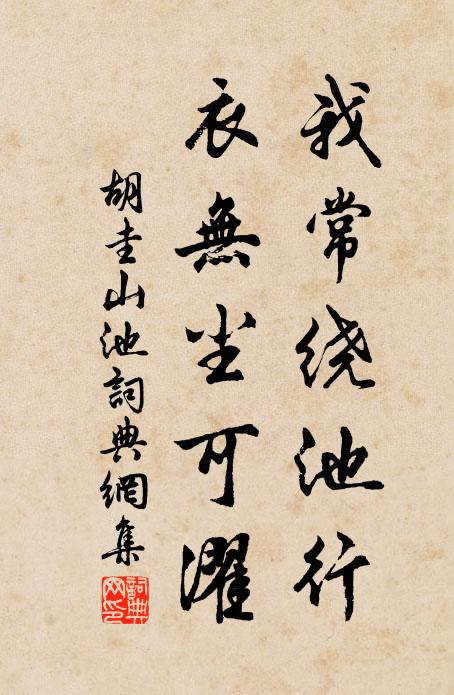 我常绕池行
衣無尘可濯
胡圭山池詞典網集
詞典
网印